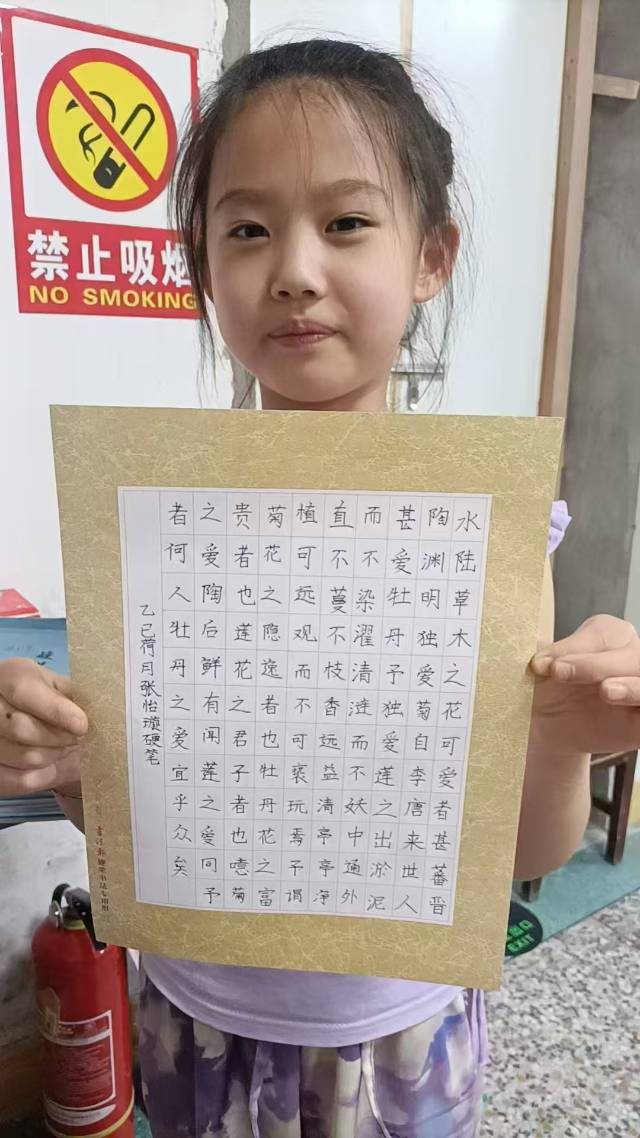 禁止吸烟
NO SMOKING
水陆草木之花可爱者甚蕃晋
陶渊明独爱菊自李唐来世人
甚爱牡丹予独爱莲之出淤泥
而不染濯清涟而不妖中通外
直不蔓不枝香远益清亭亭净
植可远观而不可亵玩焉予谓
菊花之隐逸者也牡丹花之富
贵者也莲花之君子者也噫菊
之爱陶后鲜有闻莲之爱同予
者何人牡丹之爱宜乎众矣
乙巳荷月张怡璇硬笔
EXIT